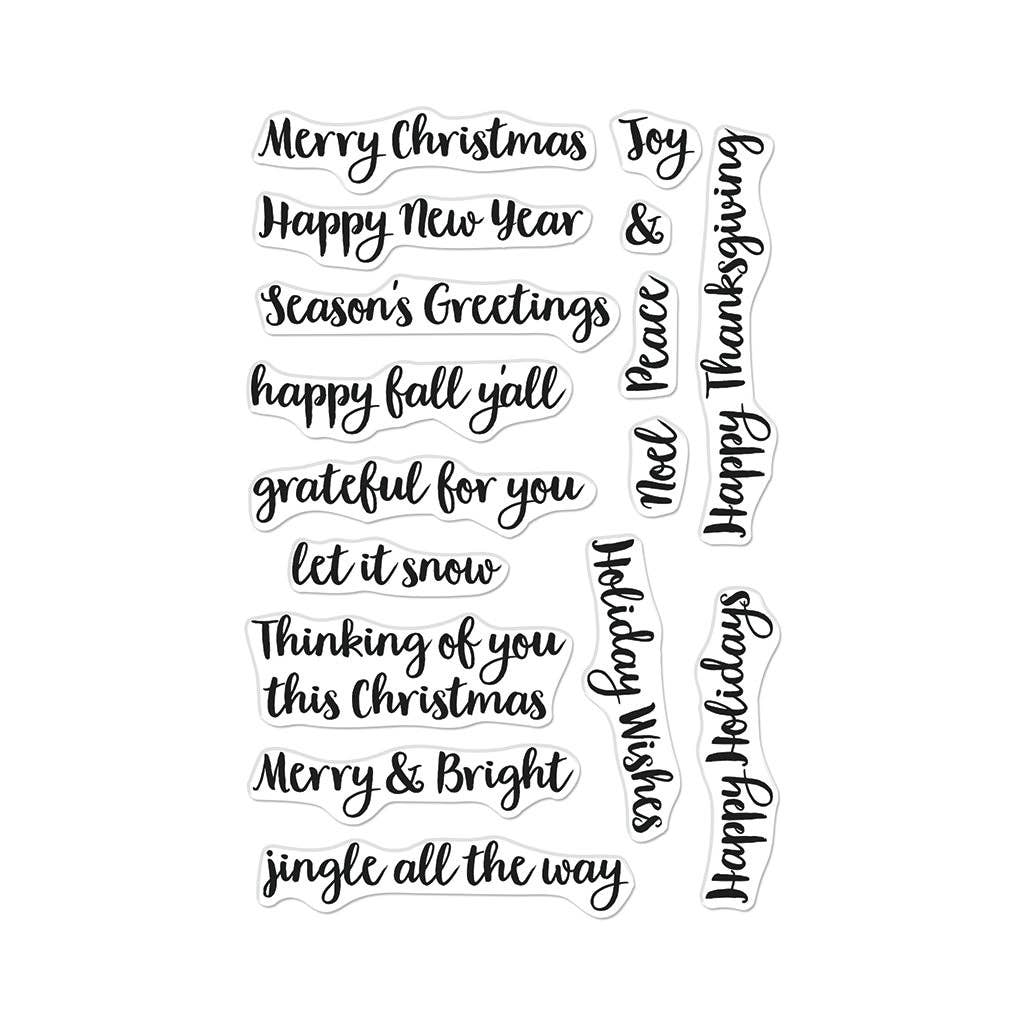 Merry Christmas
Happy New Year
Season's Greetings
happy fall y'all
grateful for you
let it snow
Thinking of you
this Christmas
Merry & Bright
jingle all the way
Joy
&
Peace
Noel
Holiday Wishes
Happy Thanksgiving
Happy Holidays